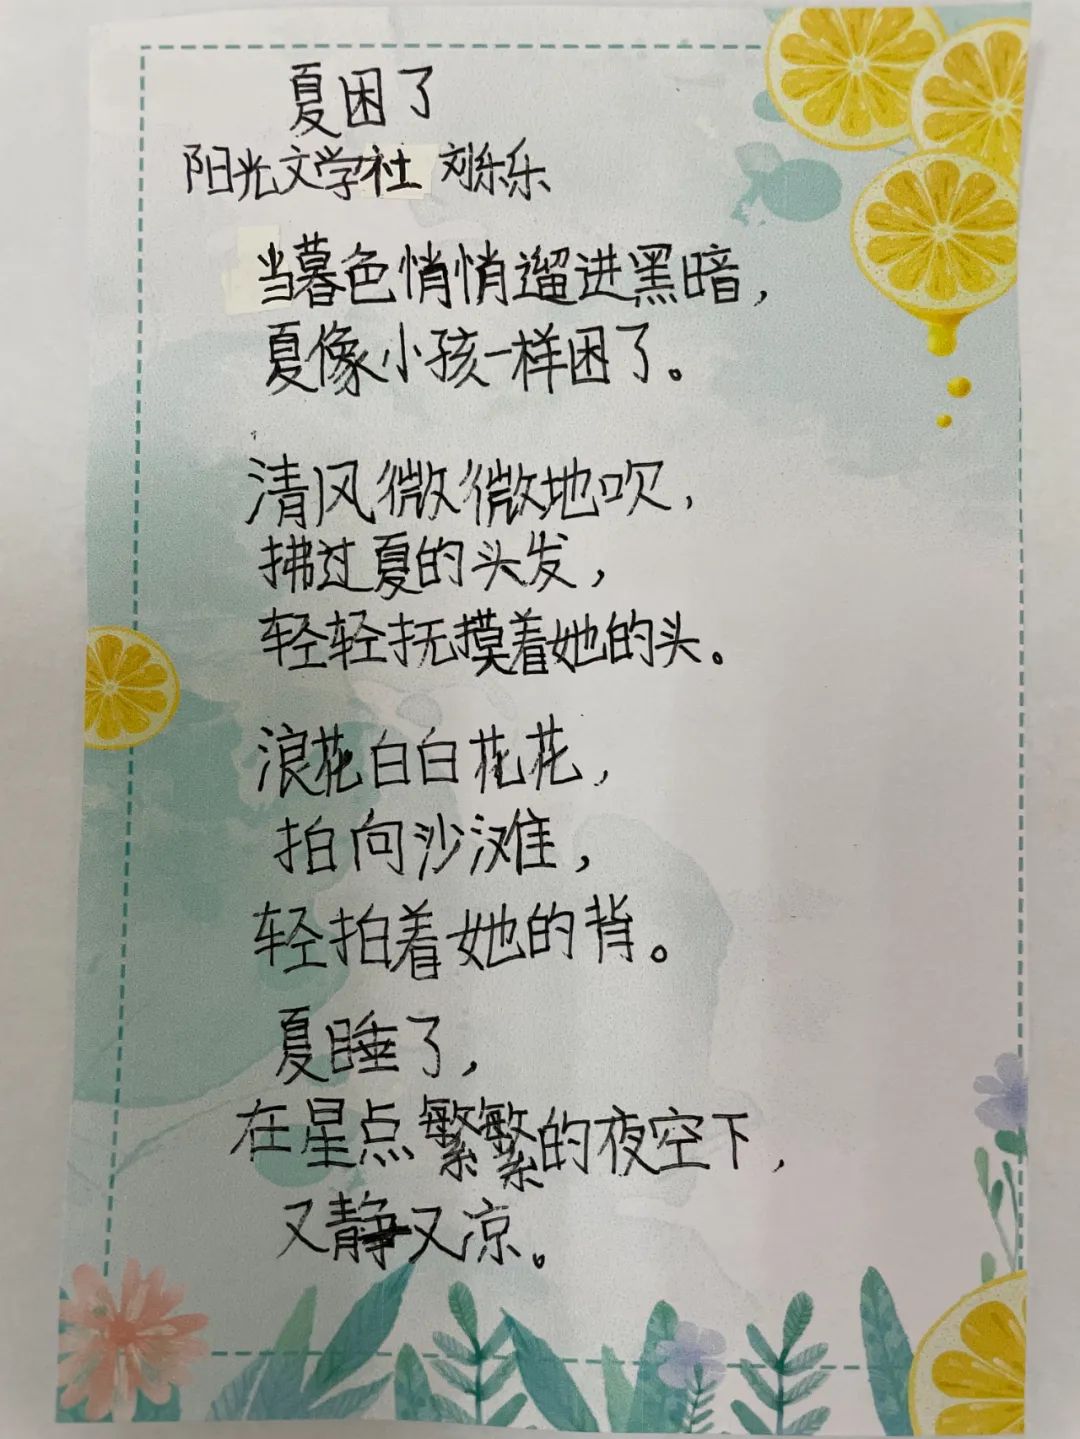 夏困了
阳光文学社 刘乐乐
当暮色悄悄遛进黑暗，
夏像小孩一样困了。
清风微微地吹，
拂过夏的头发，
轻轻抚摸着她的头。
浪花白白花花，
拍向沙滩，
轻拍着她的背。
夏睡了，
在星点繁繁的夜空下，
又静又凉。